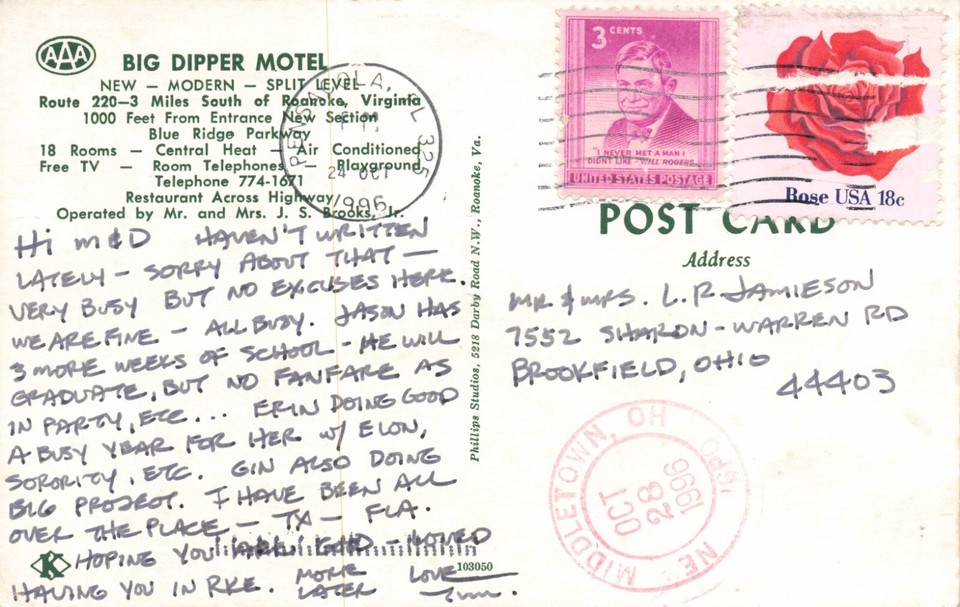 AAA
BIG DIPPER MOTEL
NEW — MODERN — SPLIT LEVEL
Route 220—3 Miles South of Roanoke, Virginia
1000 Feet From Entrance New Section
Blue Ridge Parkway
18 Rooms — Central Heat — Air Conditioned
Free TV — Room Telephones — Playground
Telephone 774-1671
Restaurant Across Highway
Operated by Mr. and Mrs. J. S. Brooks, Jr.
PENSACOLA, FL 325
PM
24 OCT
1996
Hi M & D HAVEN'T WRITTEN
LATELY - SORRY ABOUT THAT -
VERY BUSY BUT NO EXCUSES HERE.
WE ARE FINE - ALL BUSY. JASON HAS
3 MORE WEEKS OF SCHOOL - HE WILL
GRADUATE, BUT NO FANFARE AS
IN PARTY, ETC... ERIN DOING GOOD
A BUSY YEAR FOR HER W/ ELON,
SORORITY, ETC. GIN ALSO DOING
BIG PROJECT. I HAVE BEEN ALL
OVER THE PLACE - TX - FLA.
HOPING YOU ARE GOOD - LOVED
HAVING YOU IN RKE. MORE
LATER
LOVE
K
103050
Phillips Studios, 5218 Darby Road N.W., Roanoke, Va.
3 CENTS
"I NEVER MET A MAN I
DIDN'T LIKE - WILL ROGERS
UNITED STATES POSTAGE
Rose USA 18c
POST CARD
Address
MR & MRS. L. R. JAMIESON
7552 SHARON-WARREN RD
BROOKFIELD, OHIO
44403
NEW MIDDLETOWN, OH
OCT
28
1996